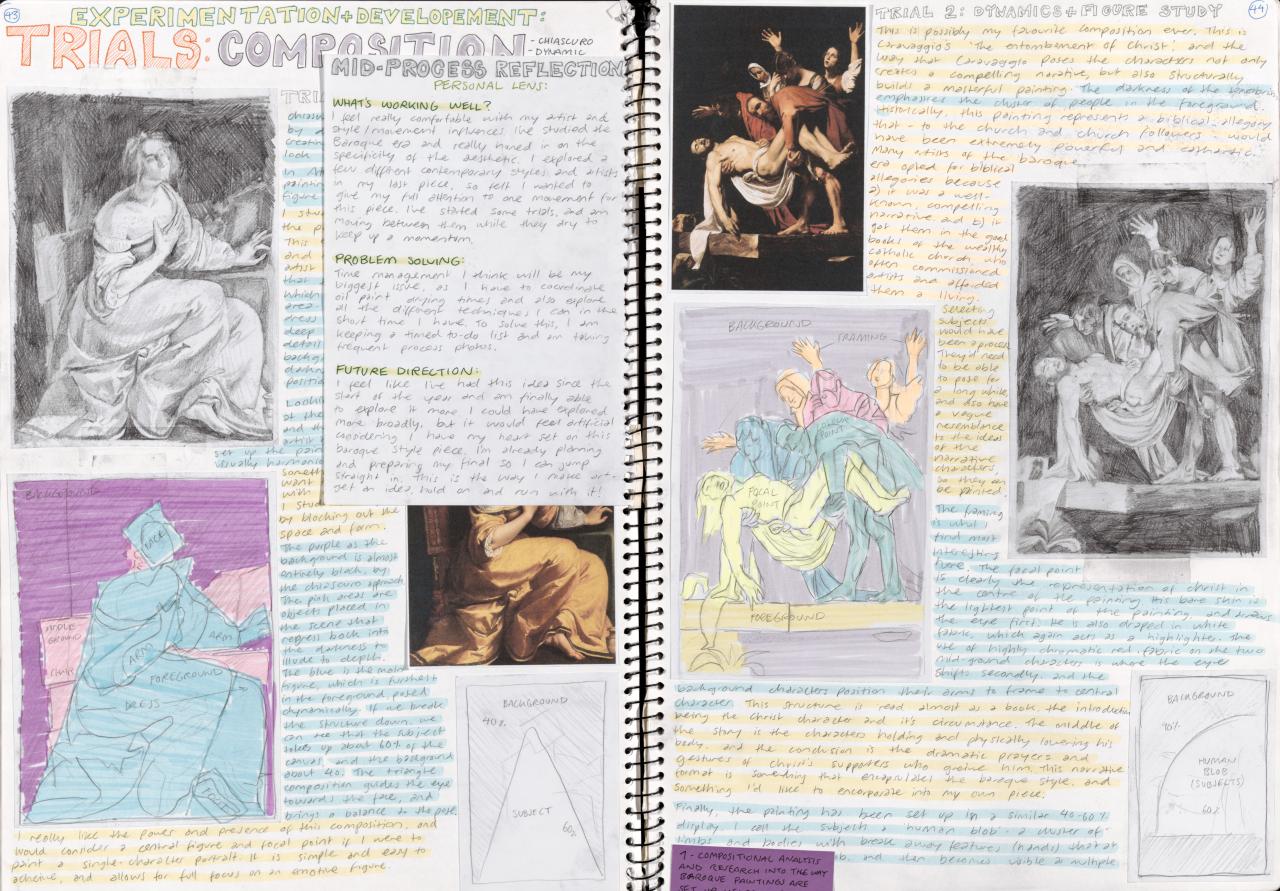 43
EXPERIMENTATION + DEVELOPEMENT:
TRIALS: COMPOSITION
- CHIASCURO
- DYNAMIC
MID-PROCESS REFLECTION
PERSONAL LENS:
WHAT'S WORKING WELL?
I feel really comfortable with my artist and
style/movement influences. I've studied the
Baroque era and really honed in on the
specificity of the aesthetic. I explored a
few diffrent contemporary styles and artists
in my last piece, so felt I wanted to
give my full attention to one movement for
this piece. I've started some trials, and am
moving between them while they dry to
keep up a momentum.
PROBLEM SOLVING:
Time management I think will be my
biggest issue, as I have to coordinate
oil paint drying times and also explore
all the different techniques I can in the
short time I have. To solve this, I am
keeping a timed to-do list and am taking
frequent process photos.
FUTURE DIRECTION:
I feel like I've had this idea since the
start of the year and am finally able
to explore it more I could have explored
more broadly, but it would feel artificial
considering I have my heart set on this
baroque style piece. I'm already planning
and preparing my final so I can jump
straight in. This is the way I make art-
get an idea, hold on and run with it!
set up the pain
visually harmonic
by blocking out the
space and form.
The purple as the
background is almost
entirely black, by
the chiascuro approach
The pink areas are
objects placed in
the scene that
regress back into
the darkness to
illude to depth.
The blue is the main
figure, which is furthest
in the foreground, posed
dynamically. If we break
the structure down, we
can see that the subject
takes up about 60% of the
canvas, and the background
about 40. The triangle
composition guides the eye
towards the face, and
brings a balance to the pose.
I really like the power and presence of this composition, and
would consider a central figure and focal point if I were to
paint a single-character portrait. It is simple and easy to
acheive, and allows for full focus on an emotive figure.
BACKGROUND
FACE
MIDDLE
GROUND
CHAIR
ARM
ARM
FOREGROUND
DRESS
FOOT
BACKGROUND
40%
SUBJECT
60%
44
TRIAL 2: DYNAMICS + FIGURE STUDY
This is possibly my favourite composition ever. This is
Caravaggio's 'The entombement of Christ', and the
way that Caravaggio poses the characters not only
creates a compelling narative, but also structurally
builds a masterful painting. The darkness of the tenebrism
emphasises the cluster of people in the foreground.
Historically, this painting represents a biblical allegory
that - to the church and church followers - would
have been extremely powerful and cathartic.
Many artists of the baroque
era opted for biblical
allegories because
a) it was a well-
known, compelling
narrative, and b) it
got them in the good
books of the wealthy
catholic church, who
often commissioned
artists and afforded
them a living.
Selecting
subjects
would have
been a process
They'd need
to be able
to pose for
a long while,
and also have
vague
resemblance
to the ideas
of the
narrative
characters,
so they can
be painted.
The framing
is what I
find most
interesting
here. The focal point
is clearly the representation of christ in
the centre of the painting. His bare skin is
the lightest point of the painting, and draws
the eye first. He is also draped in white
fabric, which again acts as a highlighter. The
use of highly chromatic red fabric on the two
mid-ground characters is where the eye
shifts secondly, and the
background characters position their arms to frame to central
character. This structure is read almost as a book, the introduction
being the Christ character and it's circumstance. The middle of
the story is the characters holding and physically lowering his
body, and the conclusion is the dramatic prayers and
gestures of christ's supporters who greive him. This narrative
format is something that encapsulates the baroque style, and
something I'd like to encorporate into my own piece.
Finally, the painting has been set up in a similar 40-60%
display. I call the subjects a 'human blob' - a cluster of
limbs and bodies with break away features (hands) that at
blob, and then becomes visible as multiple
BACKGROUND
FRAMING
POINT
FOCAL
POINT
FOREGROUND
BACKGROUND
40%
HUMAN
BLOB
(SUBJECTS)
60%
1 - COMPOSITIONAL ANALYSIS
AND RESEARCH INTO THE WAY
BAROQUE PAINTINGS ARE